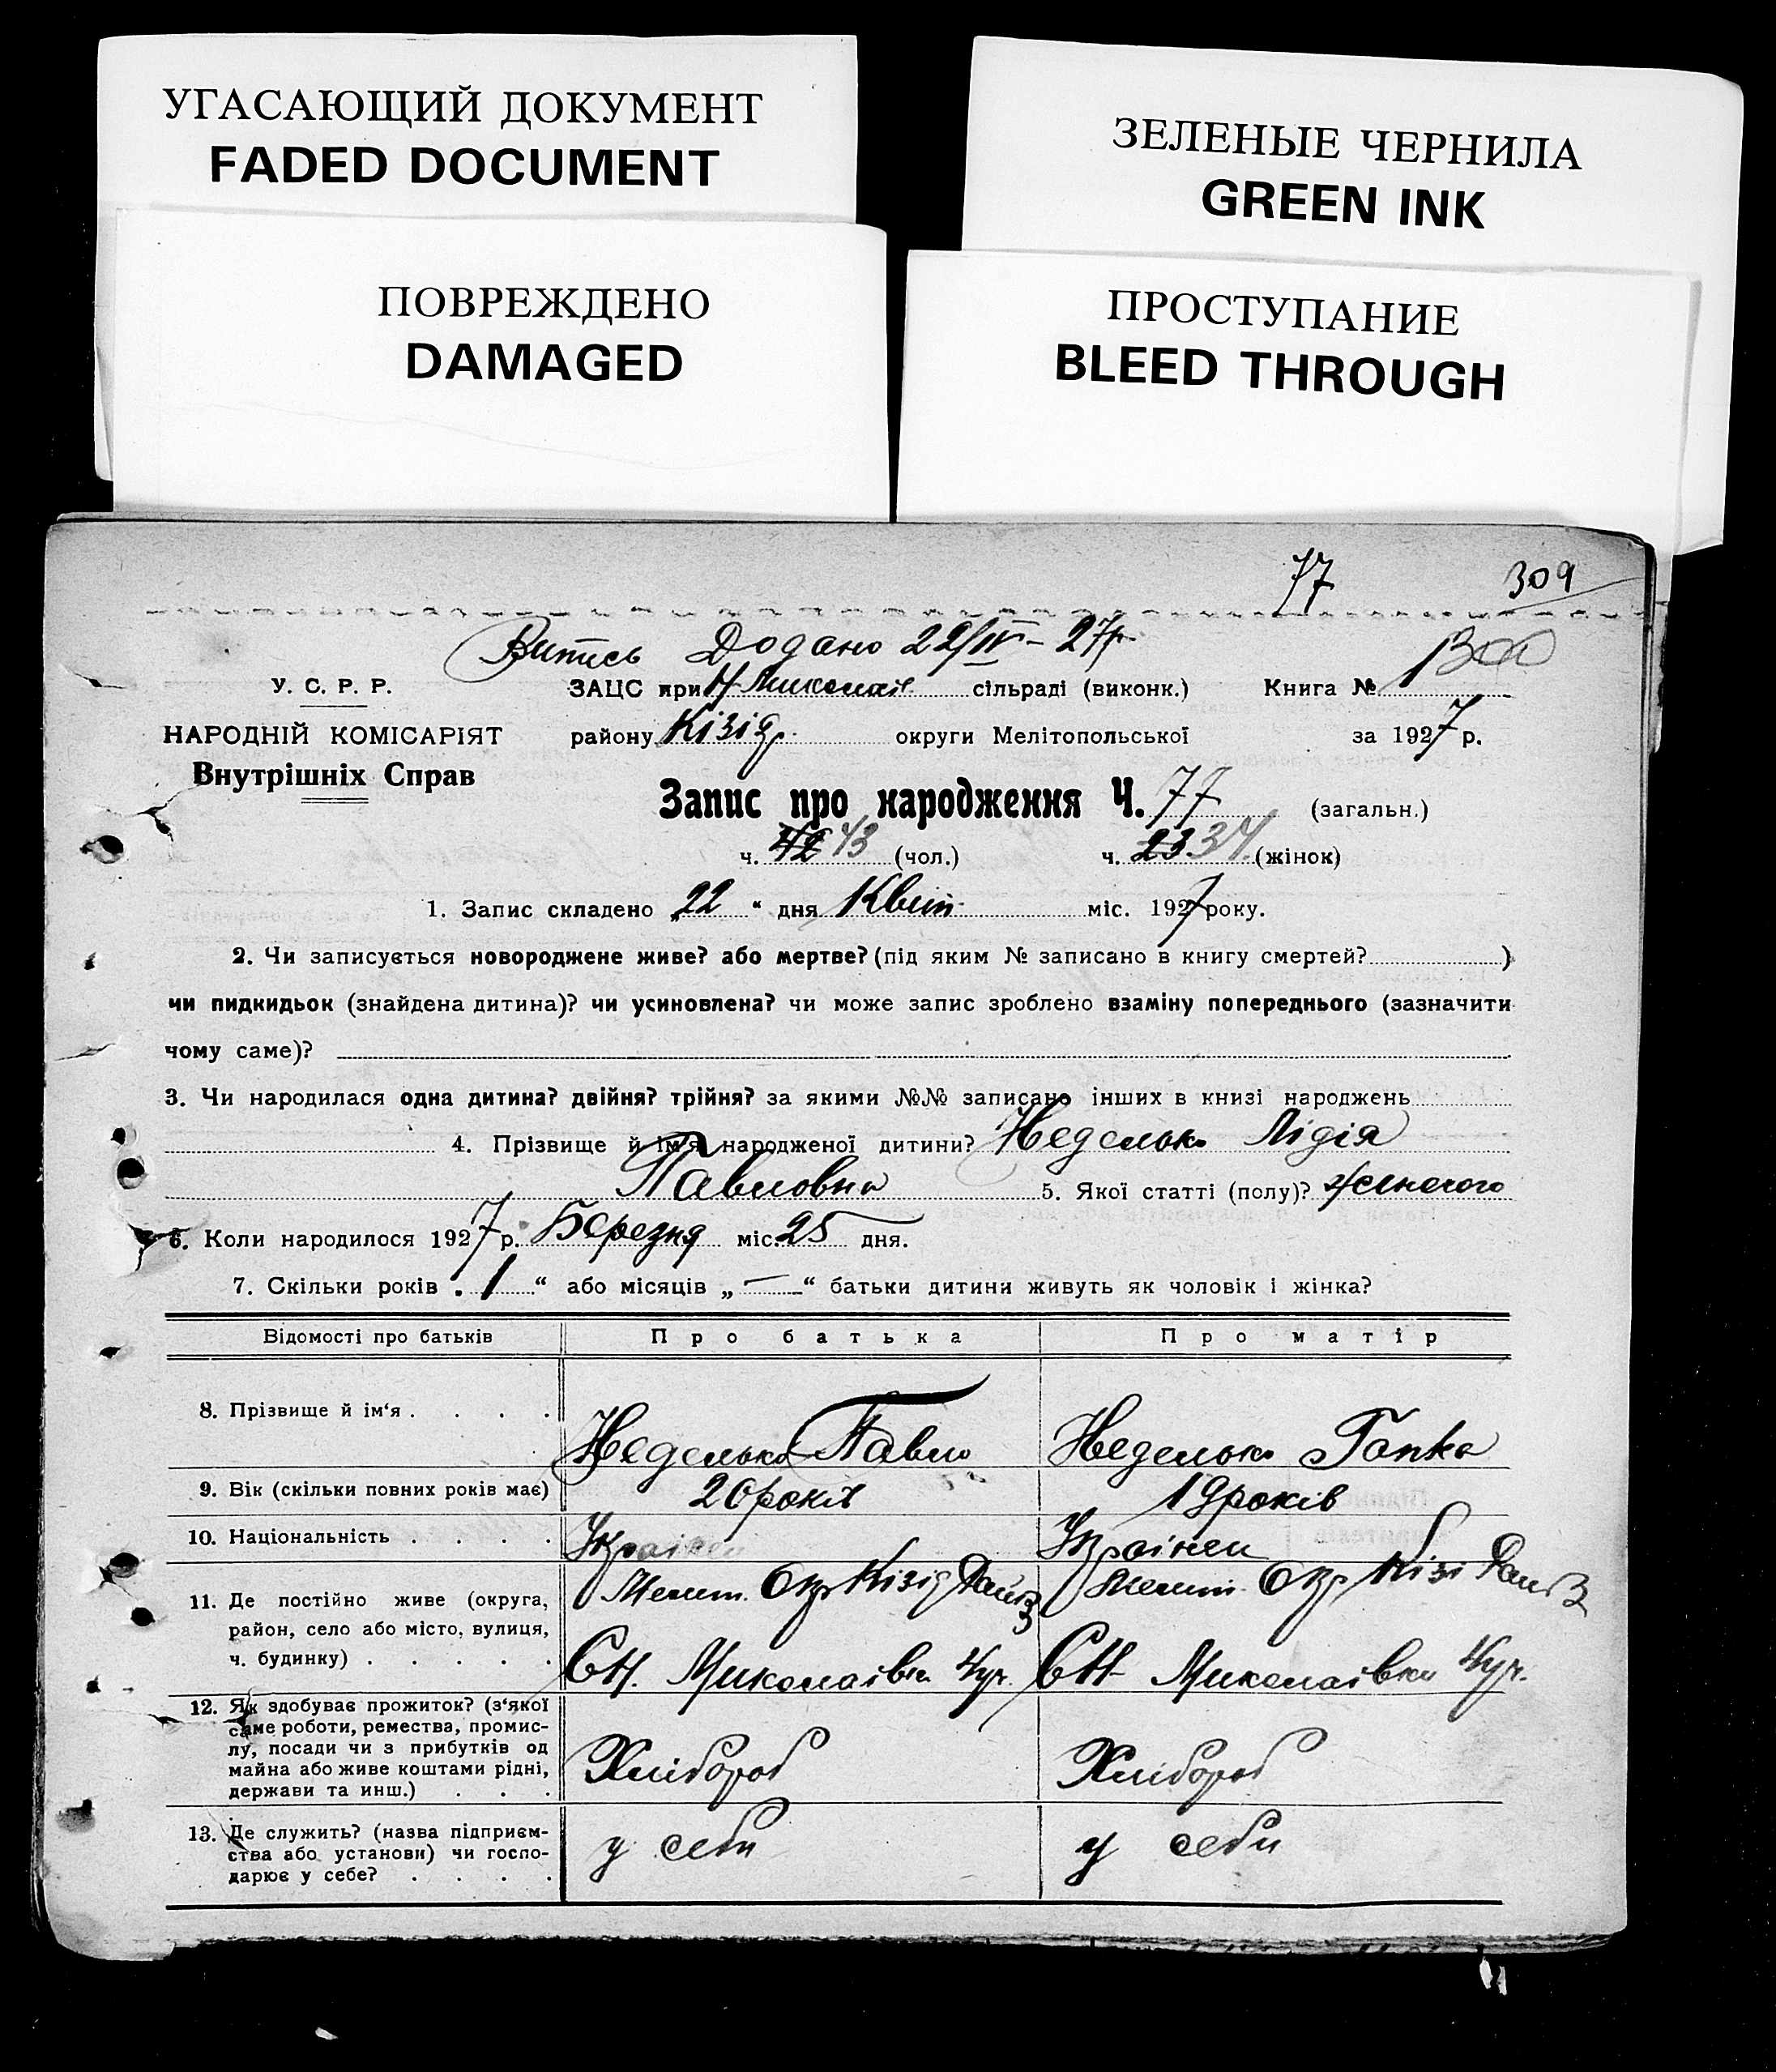 УГАСАЮЩИЙ ДОКУМЕНТ
FADED DOCUMENT
ЗЕЛЕНЫЕ ЧЕРНИЛА
GREEN INK
ПОВРЕЖДЕНО
DAMAGED
ПРОСТУПАНИЕ
BLEED THROUGH
77 309
Витпсь Додано 22/IV - 27р.
У. С. Р. Р. ЗАЦС при Н Миколаів. сільраді (виконк.) Книга №
НАРОДНІЙ КОМІСАРІЯТ району Кізіяр. округи Мелітопольської за 1927 р.
Внутрішніх Справ
Запис про народження Ч. 77 (загальн.)
ч. 42 43 (чол.) ч. 23 34 (жінок)
1. Запис складено „22“ дня Квіт. міс. 1927 року.
2. Чи записується новороджене живе? або мертве? (під яким № записано в книгу смертей? )
чи пидкидьок (знайдена дитина)? чи усиновлена? чи може запис зроблено взаміну попереднього (зазначити
чому саме)?
3. Чи народилася одна дитина? двійня? трійня? за якими №№ записано інших в книзі народжень
4. Прізвище й ім'я народженої дитини? Неделько Лідія
Павловна 5. Якої статті (полу)? женочого
6. Коли народилося 1927 р. Березня міс. 25 дня.
7. Скільки років „1“ або місяців „—“ батьки дитини живуть як чоловік і жінка?
Відомості про батьків Про батька Про матір
8. Прізвище й ім'я . . . . Неделько Павло Неделько Гапка
9. Вік (скільки повних років має) 20 років 19 років
10. Національність . . . . Украінец Украінец
11. Де постійно живе (округа, Мелит. Окр Кізія Рай Мелит. Окр Кізі Рай
район, село або місто, вулиця,
ч. будинку) . . . . . СН. Миколаівка 4уч. СН Миколаівка 4уч.
12. Як здобуває прожиток? (з'якої
саме роботи, ремества, промис-
лу, посади чи з прибутків од Хлібороб Хлибороб
майна або живе коштами рідні,
держави та инш.) . . .
13. Де служить? (назва підприєм- у себи у себи
ства або установи) чи госпо-
дарює у себе? . . . .